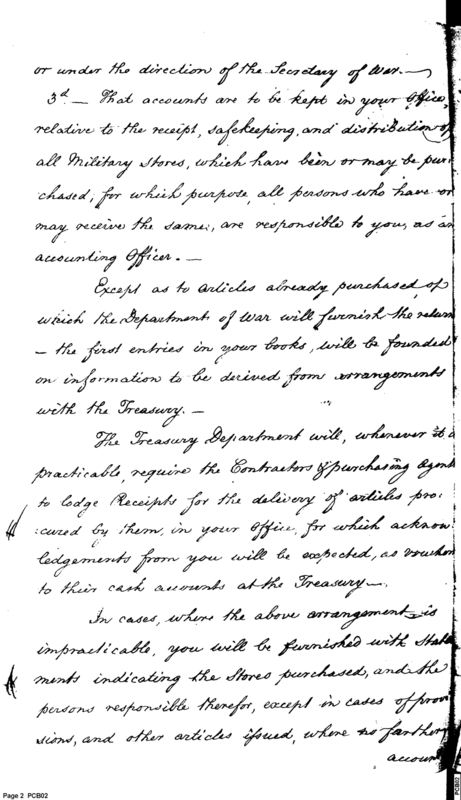 or under the direction of the Secretary of War. —
3d — That accounts are to be kept in your Office,
relative to the receipt, safekeeping, and distribution of
all Military Stores, which have been or may be pur:
chased; for which purpose, all persons who have or
may receive the same, are responsible to you, as an
accounting Officer. —
Except as to articles already purchased, of
which the Department of War will furnish the return
— the first entries in your books, will be founded
on information to be derived from arrangements
with the Treasury. —
The Treasury Department will, whenever it is
practicable, require the Contractors & purchasing Agents
to lodge Receipts for the delivery of articles pro:
:cured by them, in your Office, for which acknow:
ledgements from you will be expected, as vouchers
to their cash accounts at the Treasury —.
In cases, where the above arrangement is
impracticable, you will be furnished with State
ments indicating the Stores purchased, and the
persons responsible therefor, except in cases of provi
sions, and other articles issued, where no farther
account
Page 2 PCB02
PCB02